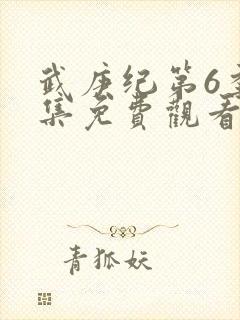 武庚纪第6季
集免費觀看
青狐妖